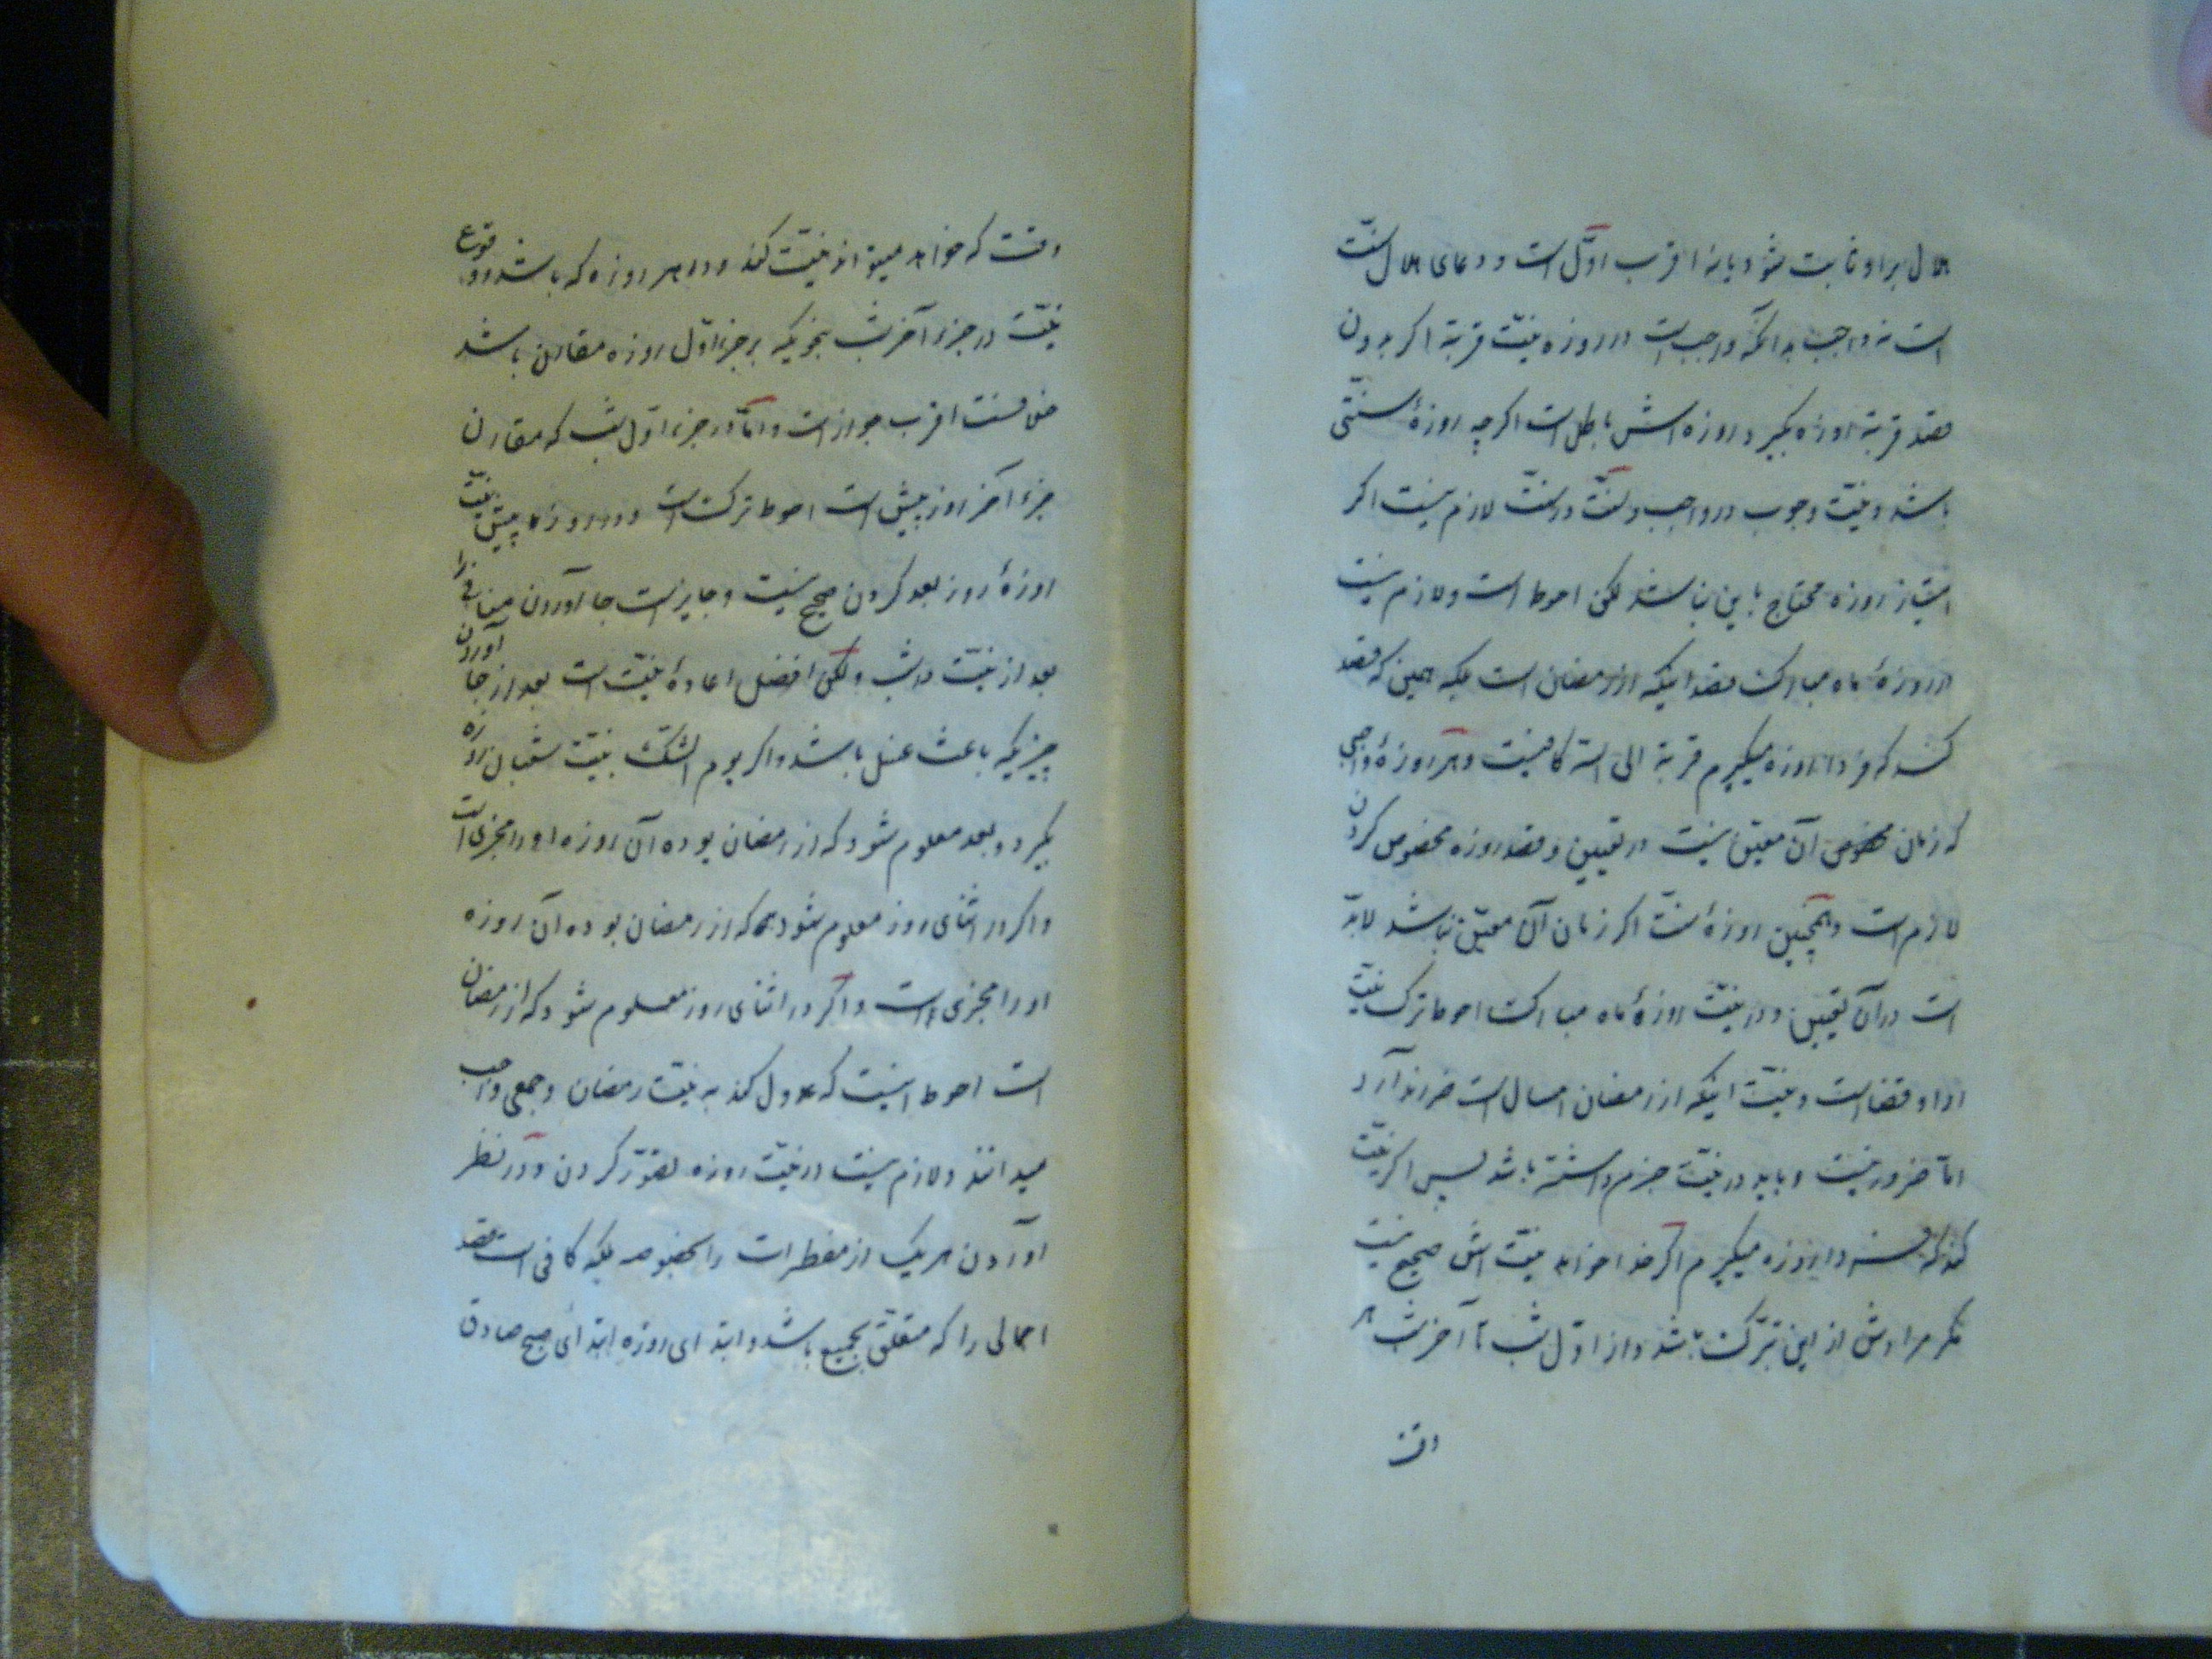 هلال براو ثابت شود یا نه اقرب اوّل است و دعای هلال سنّت
است نه واجب بدانکه واجب است در روزه نیّت قربة اگر بدون
قصد قربة روزه بگیرد روزه اش باطل است اگرچه روزهٔ سنّتی
باشد و نیّت وجوب در واجب و سنّت در سنّت لازم نیست اگر
امتیاز روزه محتاج باین نباشد لکن احوط است و لازم نیست
در روزهٔ ماه مبارک قصد اینکه از رمضان است بلکه همین که قصد
کند که فردا روزه میگیرم قربة الی الله کافیست و هر روزهٔ واجبی
که زمان مخصوص آن معیّن نیست در تعیین و قصد روزه مخصوص کردن
لازم است و همچنین روزهٔ سنّت اگر زمان آن معیّن نباشد لابدّ
است در آن تعیین و در نیّت روزهٔ ماه مبارک احوط ترک نیّت
ادا و قضا است و نیّت اینکه از رمضان امسال است ضرر ندارد
امّا ضرور نیست و باید در نیّت جزم داشته باشد پس اگر نیّت
کند که فردا روزه میگیرم اگر خدا خواهد نیّت اش صحیح نیست
مگر مرادش از این تبرّک باشد و از اوّل شب تا آخر شب هر
وقت
وقت که خواهد میتواند نیّت کند و در هر روزه که باشد و وقوع
نیّت در جزء آخر شب بنحویکه بر جزء اوّل روزه مقارن باشد
اقرب جواز است و امّا در جزء اوّل شب که مقارن
جزء آخر روز پیش است احوط ترک است و در روزهای پیش نیّت
روزهٔ روز بعد کردن صحیح نیست و جایز است جا آوردن منافی را
بعد از نیّت در شب و لکن افضل اعادهٔ نیّت است بعد از جا آوردن
چیزیکه باعث غسل باشد و اگر یوم الشّک بنیّت شعبان روزه
بگیرد و بعد معلوم شود که از رمضان بوده آن روزه او را مجزی است
و اگر در اثنای روز معلوم شود که از رمضان بوده آن روزه
او را مجزی است و اگر در اثنای روز معلوم شود که از رمضان
است احوط اینست که عدول کند به نیّت رمضان و جمعی واجب
میدانند و لازم نیست در نیّت روزه تصوّر کردن و در نظر
آوردن هر یک از مفطرات را بخصوصه بلکه کافی است قصد
اجمالی را که متعلّق بجمیع باشد و ابتدای روزه ابتدای صبح صادق